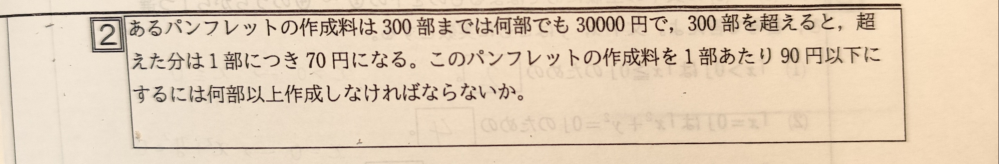 2
あるパンフレットの作成料は300部までは何部でも30000円で，300部を超えると，超
えた分は1部につき70円になる。このパンフレットの作成料を1部あたり90円以下に
するには何部以上作成しなければならないか。